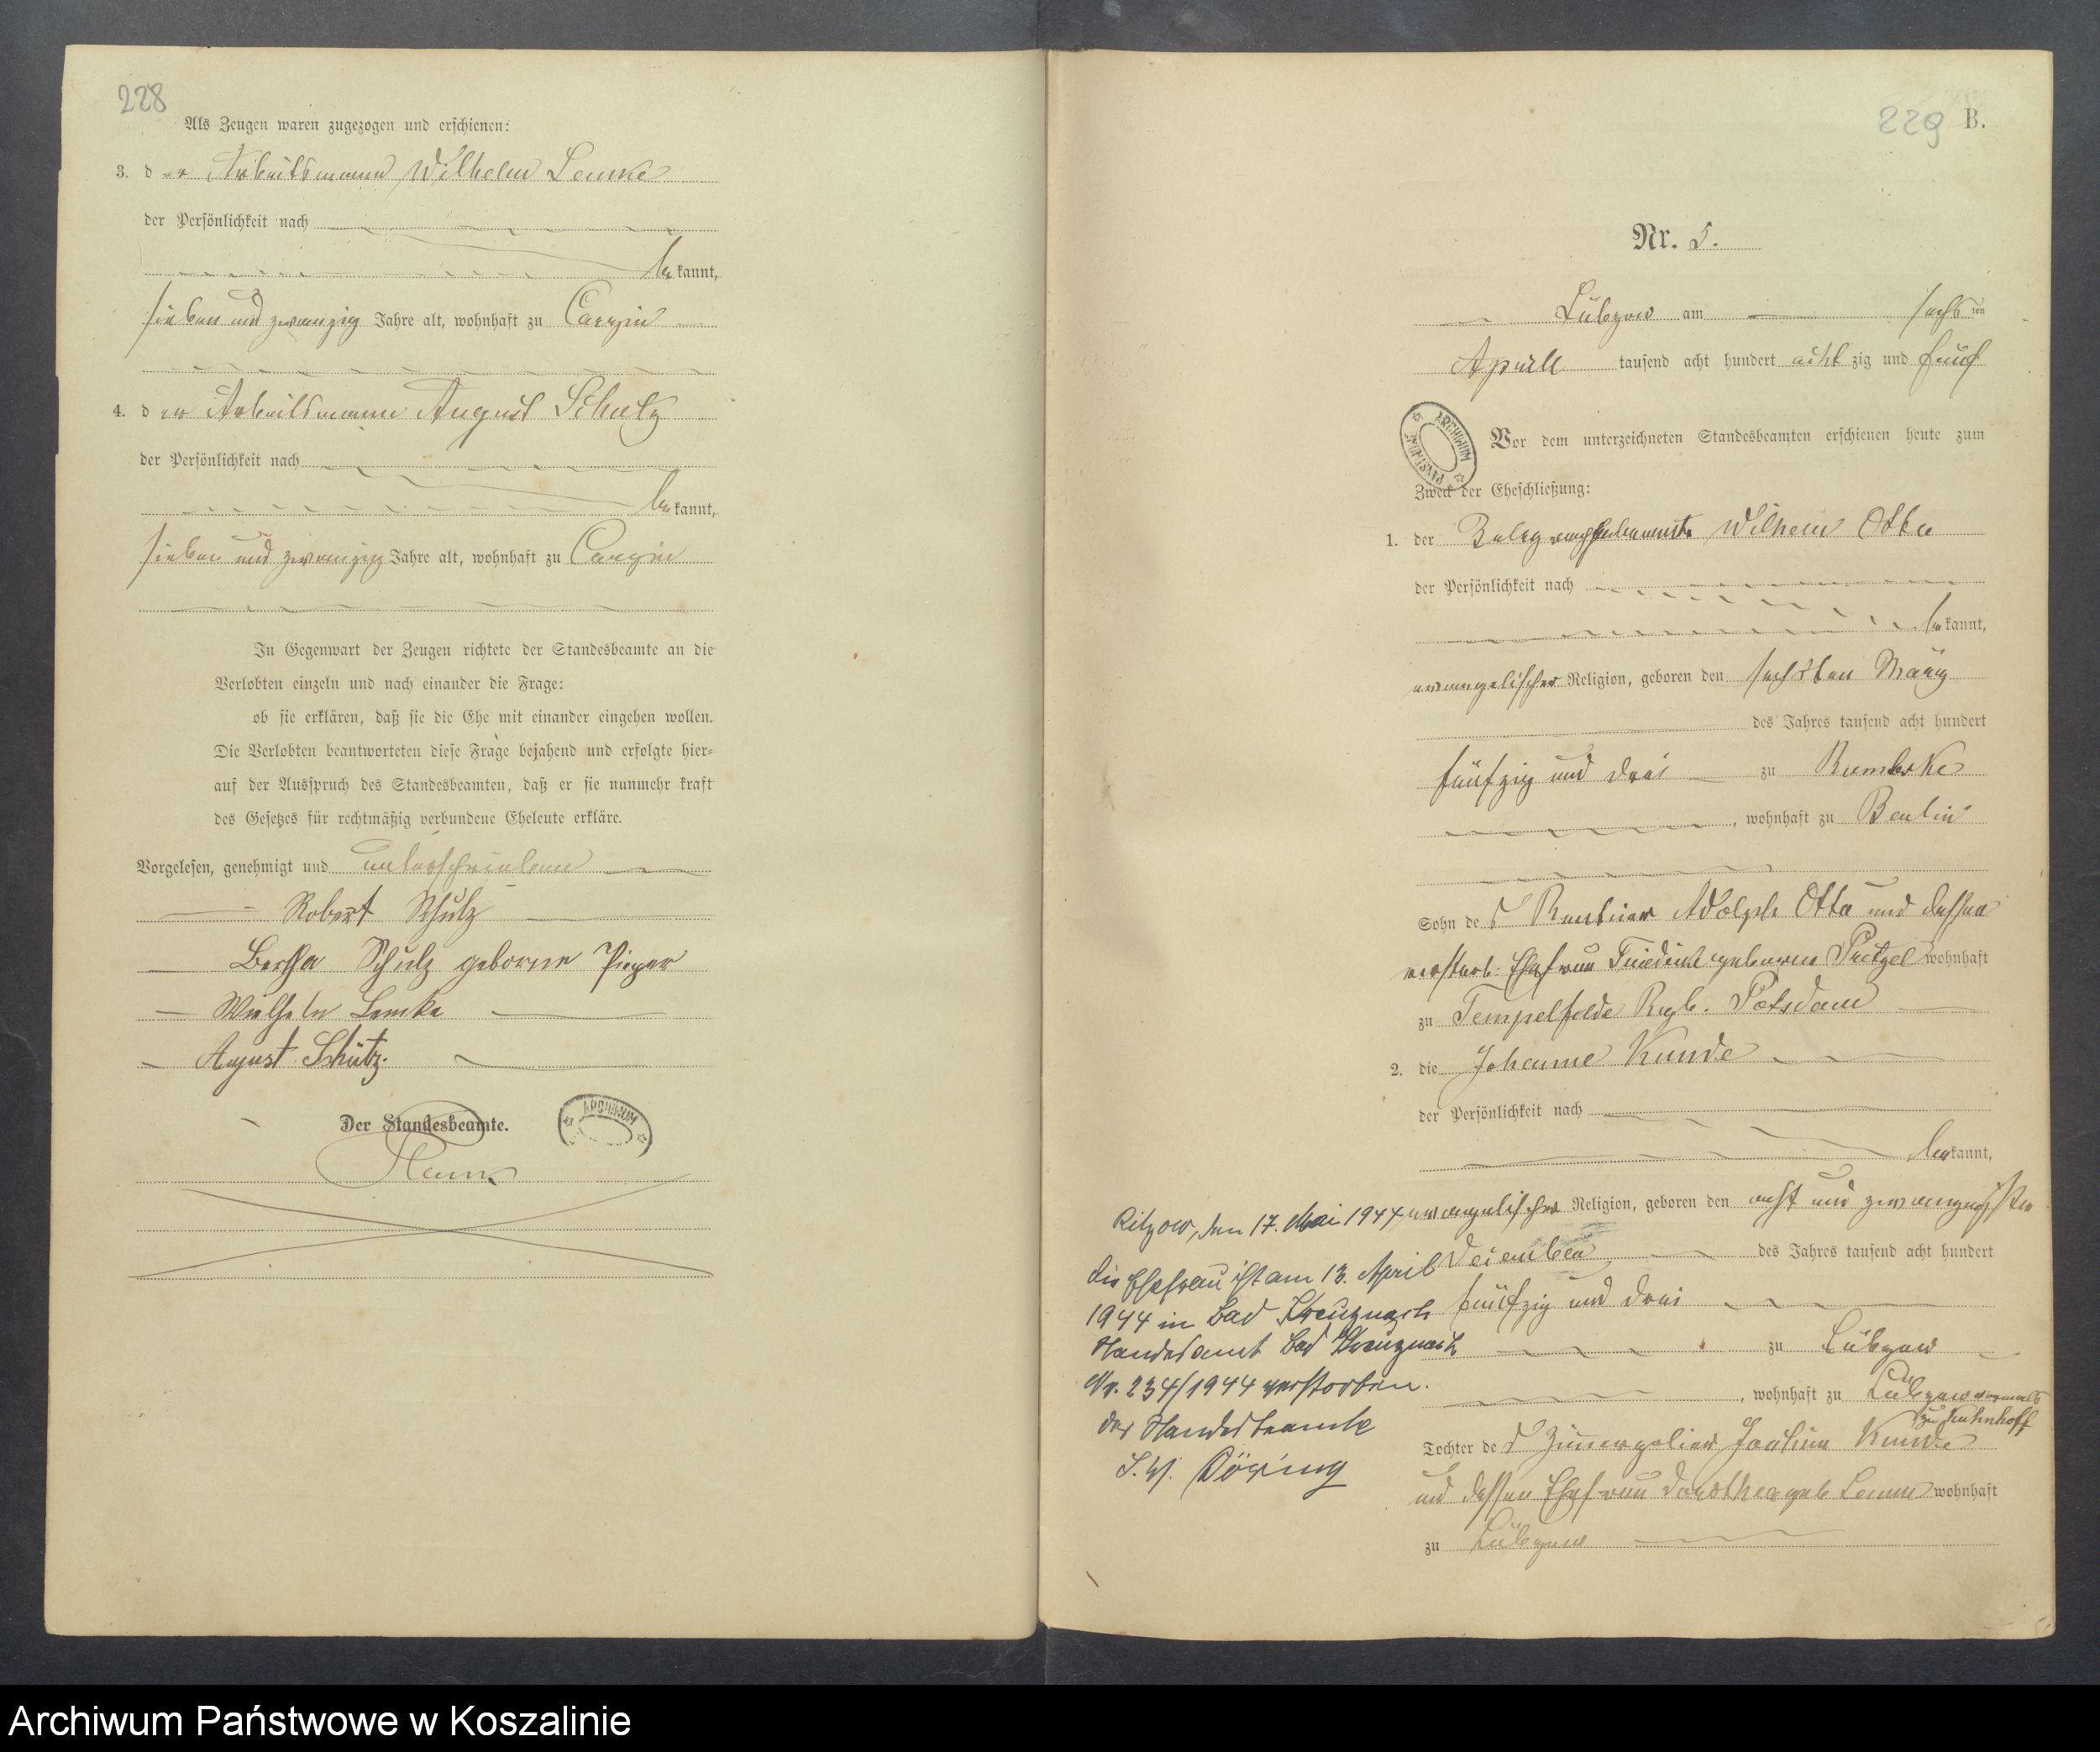 228
Als Zeugen waren zugezogen und erschienen:
3. der Arbeitsmann Wilhelm Lemke
der Persönlichkeit nach
bekannt,
sieben und zwanzig Jahre alt, wohnhaft zu Carzin
4. der Arbeitsmann August Schulz
der Persönlichkeit nach
bekannt,
sieben und zwanzig Jahre alt, wohnhaft zu Carzin
In Gegenwart der Zeugen richtete der Standesbeamte an die
Verlobten einzeln und nach einander die Frage:
ob sie erklären, daß sie die Ehe mit einander eingehen wollen.
Die Verlobten beantworteten diese Frage bejahend und erfolgte hier-
auf der Ausspruch des Standesbeamten, daß er sie nunmehr kraft
des Gesetzes für rechtmäßig verbundene Eheleute erkläre.
Vorgelesen, genehmigt und unterschrieben
Robert Schulz
Bertha Schulz geborne Pieper
Wilhelm Lemke
August Schütz.
Der Standesbeamte.
ARCHIWUM
229 B.
Nr. 5.
Lübzow am sechsten
April tausend acht hundert achtzig und fünf
ARCHIWUM PAŃSTWOWE
Vor dem unterzeichneten Standesbeamten erschienen heute zum
Zweck der Eheschließung:
1. der Wilhelm Otto
der Persönlichkeit nach
bekannt,
evangelischer Religion, geboren den sechsten März
des Jahres tausend acht hundert
fünfzig und drei zu Rumbske
, wohnhaft zu Berlin
Sohn des Rentier Adolph Otto und dessen
verstorb: Ehefrau Friedrike geborene Puetzel wohnhaft
zu Tempelfelde Rgb. Potsdam
2. die Johanne Kunde
der Persönlichkeit nach
bekannt,
evangelischer Religion, geboren den acht und zwanzigsten
Dezember des Jahres tausend acht hundert
fünfzig und drei
zu Lübzow
, wohnhaft zu Lübzow vormals
zu Kuhnhoff
Tochter des Zimmerpolier Joachim Kunde
und dessen Ehefrau Dorothea geb Lemm wohnhaft
zu Lübzow
Ritzow, den 17. Mai 1944
Die Ehefrau ist am 13. April
1944 in Bad Kreuznach
Standesamt Bad Kreuznach
Nr. 234/1944 verstorben.
Der Standesbeamte
I.V. Döring
Archiwum Państwowe w Koszalinie